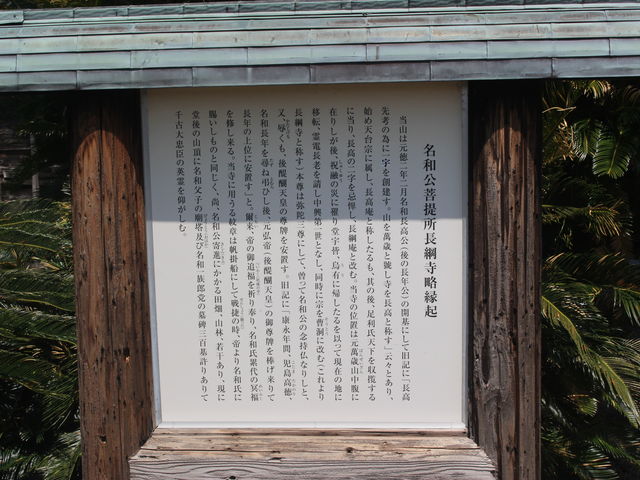 名和公菩提所長綱寺略縁起
当山は元徳二年二月名和長高公（後の長年公）の開基にして旧記に「長高
先考の為に一宇を創建す。山を萬歳と號し寺を長高と称す」云々とあり、
始め天台宗に属し、長高庵と称したるも、其の後、足利氏天下を収攬する
に当り、長高の二字を忌憚し、長綱庵と改む。当寺の位置は元萬歳山中腹に
在りしが後、祝融の災に罹り堂宇皆、烏有に帰したるを以って現在の地に
移転、霊電長老を請し中興第一世となし、同時に宗を曹洞に改む（これより
長綱寺と称す）本尊は弥陀三尊にして、曽って名和公の念持仏なりしと、
又、辱くも、後醍醐天皇の尊牌を安置す。旧記に「康永年間、児島高徳、
名和長年を尋ね弔ひし後、元弘帝（後醍醐天皇）の御尊牌を捧げ来りて
長年の上位に安置す」と、爾来、帝の御追福を祈り奉り、名和氏累代の冥福
を修し来る。当寺に用うる紋章は帆掛船にして戦捷の時、帝より名和氏に
賜いしものと同じく、尚、名和公寄進にかかる田畑、山林、若干あり、現に
堂後の山頂に名和父子の廟塔及び名和一族郎党の墓碑三百基許りありて
千古大忠臣の英霊を仰がしむ。